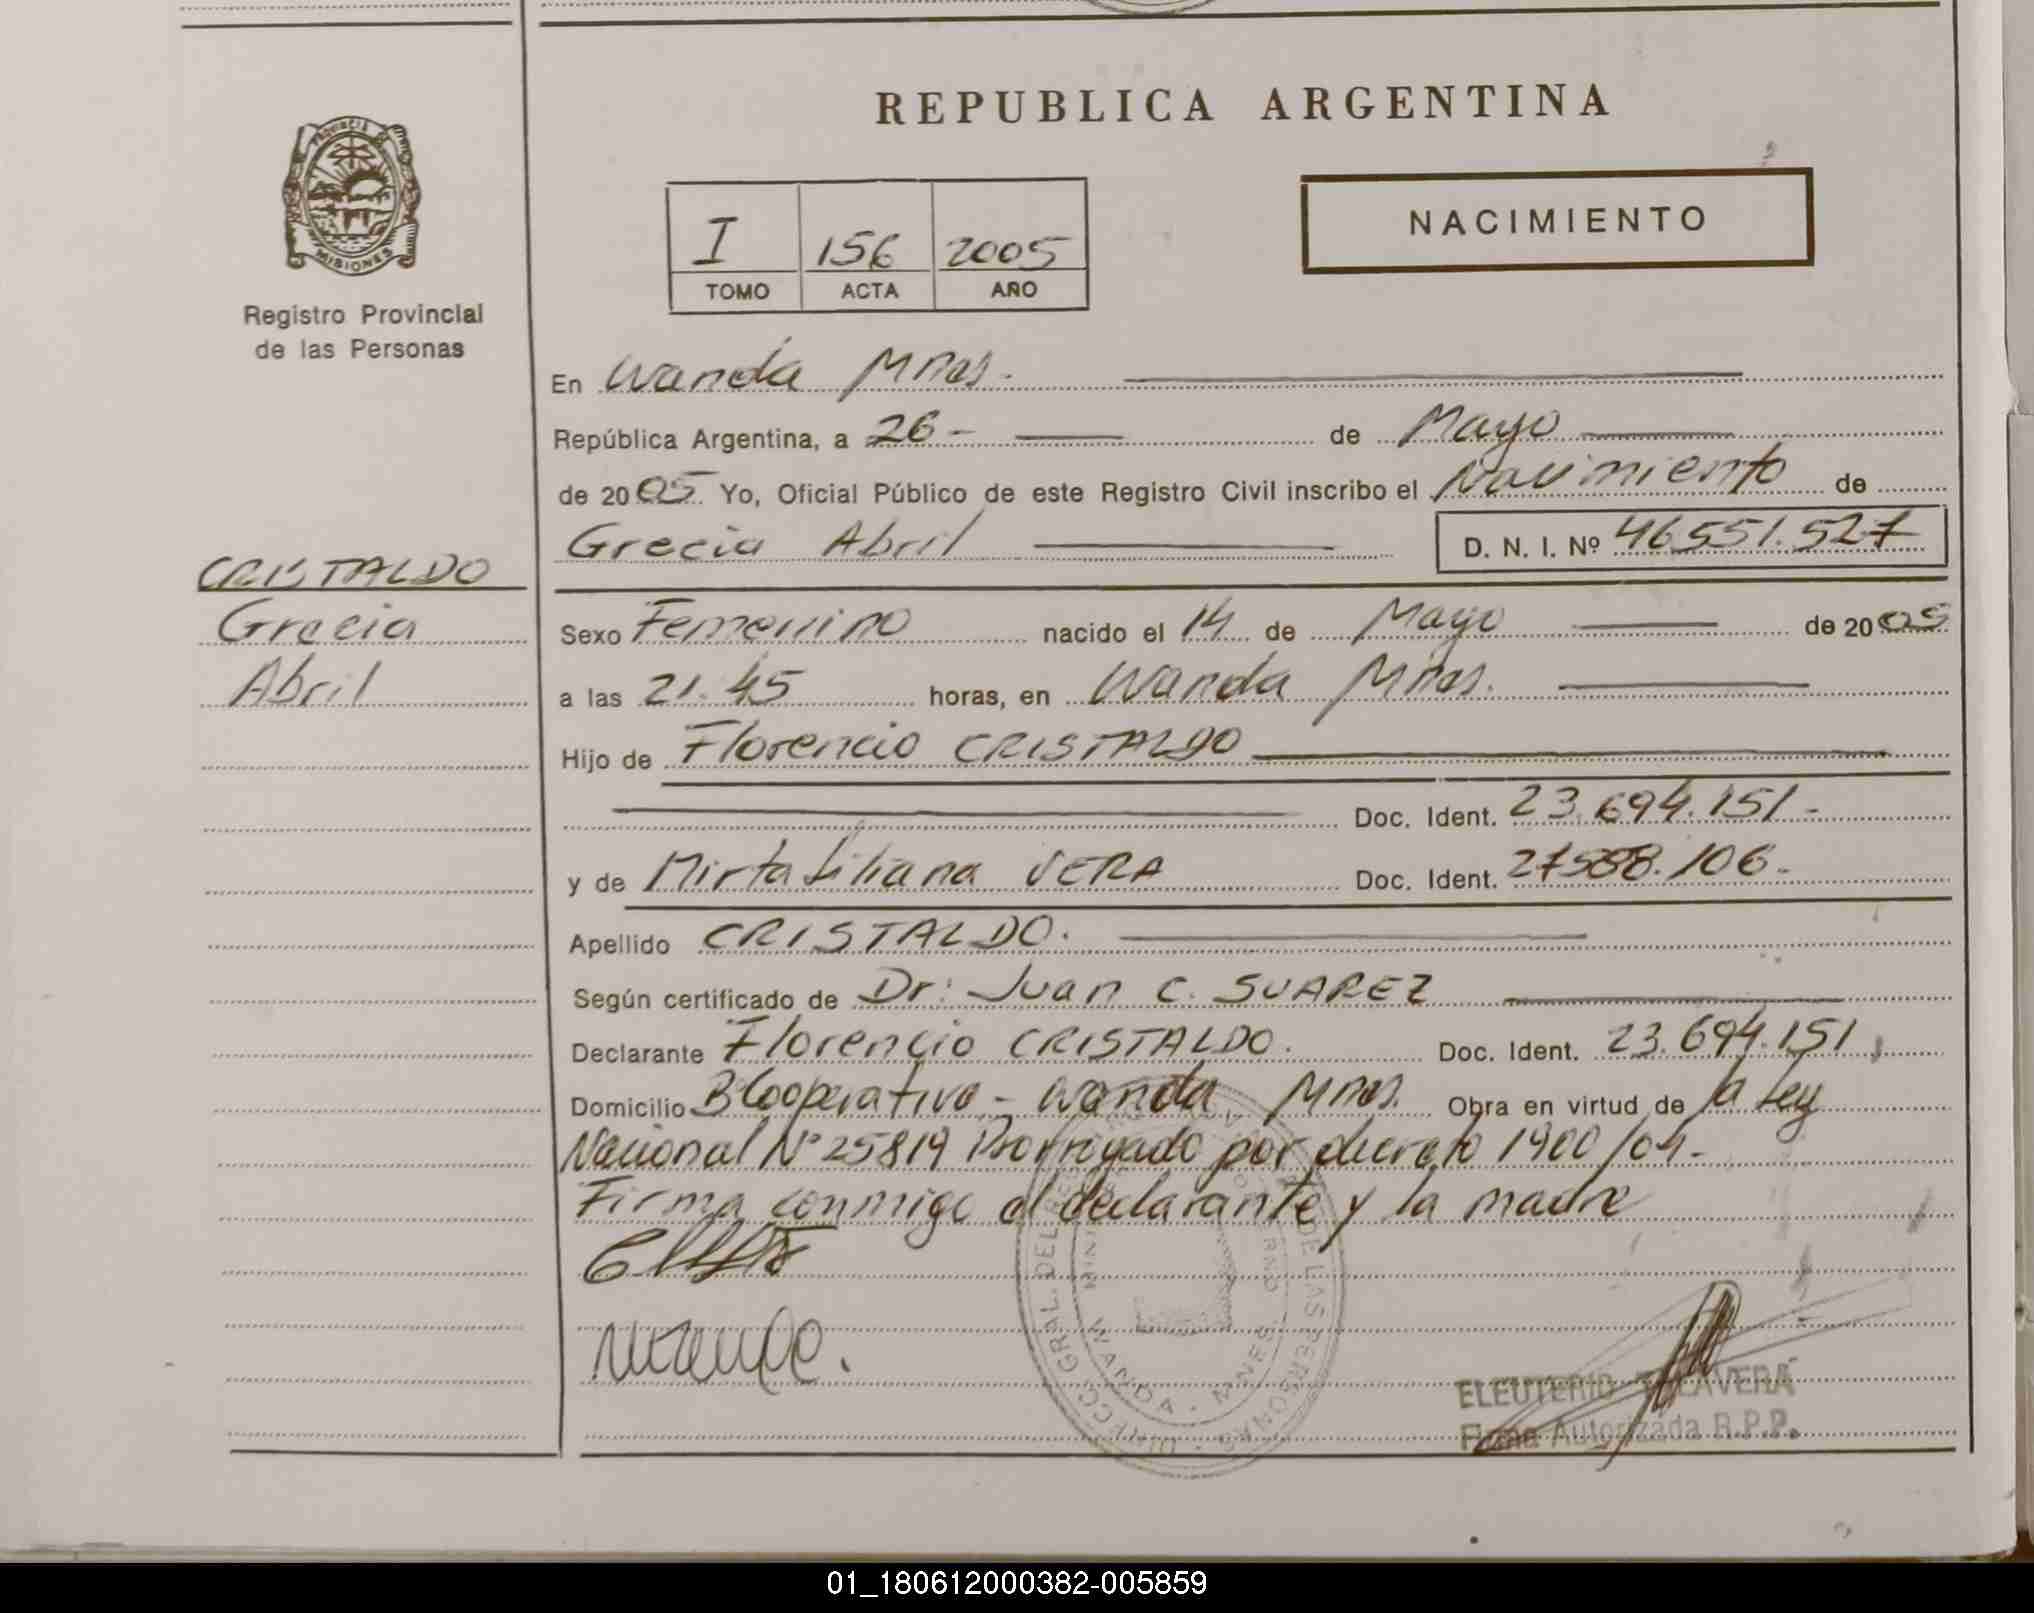 REPUBLICA ARGENTINA
PROVINCIA DE
MISIONES
Registro Provincial
de las Personas
I 156 2005
TOMO ACTA AÑO
NACIMIENTO
En Wanda Mnes.
República Argentina, a 26 - de Mayo
de 2005 Yo, Oficial Público de este Registro Civil inscribo el Nacimiento de
Grecia Abril D. N. I. Nº 46551.527
CRISTALDO
Grecia
Abril
Sexo Femenino nacido el 14 de Mayo de 2005
a las 21.45 horas, en Wanda Mnes.
Hijo de Florencio CRISTALDO
Doc. Ident. 23.694.151-
y de Mirta Liliana VERA Doc. Ident. 27588.106-
Apellido CRISTALDO.
Según certificado de Dr: Juan C. SUAREZ
Declarante Florencio CRISTALDO. Doc. Ident. 23.694.151
Domicilio Bº Cooperativa - Wanda Mnes. Obra en virtud de la Ley
Nacional Nº 25819 Prorrogado por decreto 1900/04-
Firma conmigo el declarante y la madre
DIRECC. GRAL. DEL DE LAS PERSONAS
WANDA - MNES
ELEUTERIO TALAVERA
Firma Autorizada R.P.P.
01_180612000382-005859